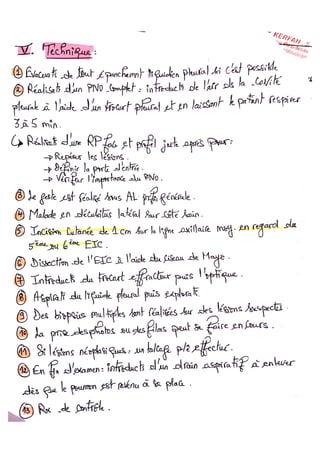 KERFAH
V. Technique :
① Evacuat° de tout épanchemnt liquidien pleural si c'est possible
② Réalisat° d'un PNO Complet : introduct° de l'air ds la Cavité
pleurale à l'aide d'un trocart pleural et en laissant le patient respirer
3 à 5 min.
↳ Réalisat° d'une RP face et profil juste après pour :
→ Repérer les lésions.
→ Définir la porte d'entrée.
→ Vérifier l'importance du PNO.
③ Le geste est réalisé sous AL générale.
④ Malade en décubitus latéral sur côté sain.
⑤ Incision Cutanée de 1 cm sur la ligne axillaire moy. en regard du
5ème ou 6ème EIC.
⑥ Dissection de l'EIC à l'aide du ciseau de Mayo.
⑦ Introduct° du trocart puis l'optique.
⑧ Aspirat° du liquide pleural puis explorat°.
⑨ Des biopsies multiples sont réalisées sur des lésions suspectes.
⑩ La prise des photos ou des films peut se faire en cours.
⑪ Si lésions néoplasiques, un talcage p/ê effectué.
⑫ En fin d'examen : introduct° d'un drain aspiratif à enlever
dès que le poumon est revenu à sa place.
⑬ Rx de contrôle.